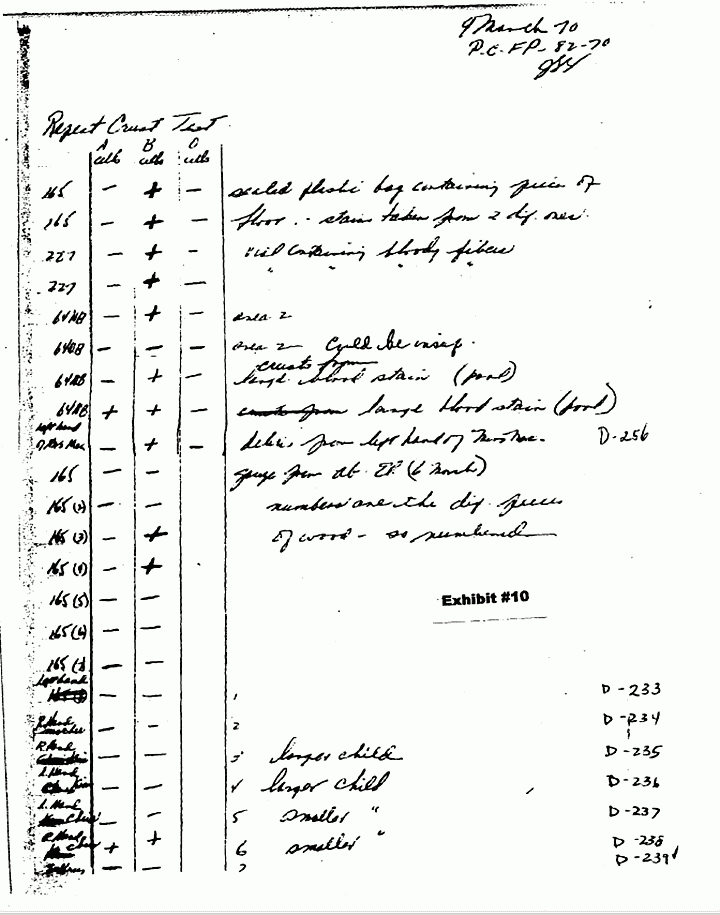 9 March 70
P.C. FP-82-70
Repeat Crust Test
A B O
cells cells cells
165 - + - sealed plastic bag containing piece of
165 - + - floor - stains taken from 2 dif. ones.
227 - + - vial containing bloody fibers
227 - + - " " " "
64HB - + - area 2
64HB - - - area 2 - could be insuf.
crusts from
64HB - + - large blood stain (pool)
64HB + + - large blood stain (pool)
left hand
- + - debris from left hand of Mrs Mac. D-256
165 - - gauze from (6 March)
165 (2) - - numbers are the dif. pieces
165 (3) - + of wood - so numbered
165 (4) - +
Exhibit #10
165 (5) - -
165 (6) - -
165 (7) - -
left hand
- - 1 D-233
R. Hand
- - 2 D-234
R. Hand
- - 3 larger child D-235
L. Hand
- - 4 larger child D-236
L. Hand
- - 5 smaller " D-237
R. Hand
+ + 6 smaller " D-238
- - 7 D-239